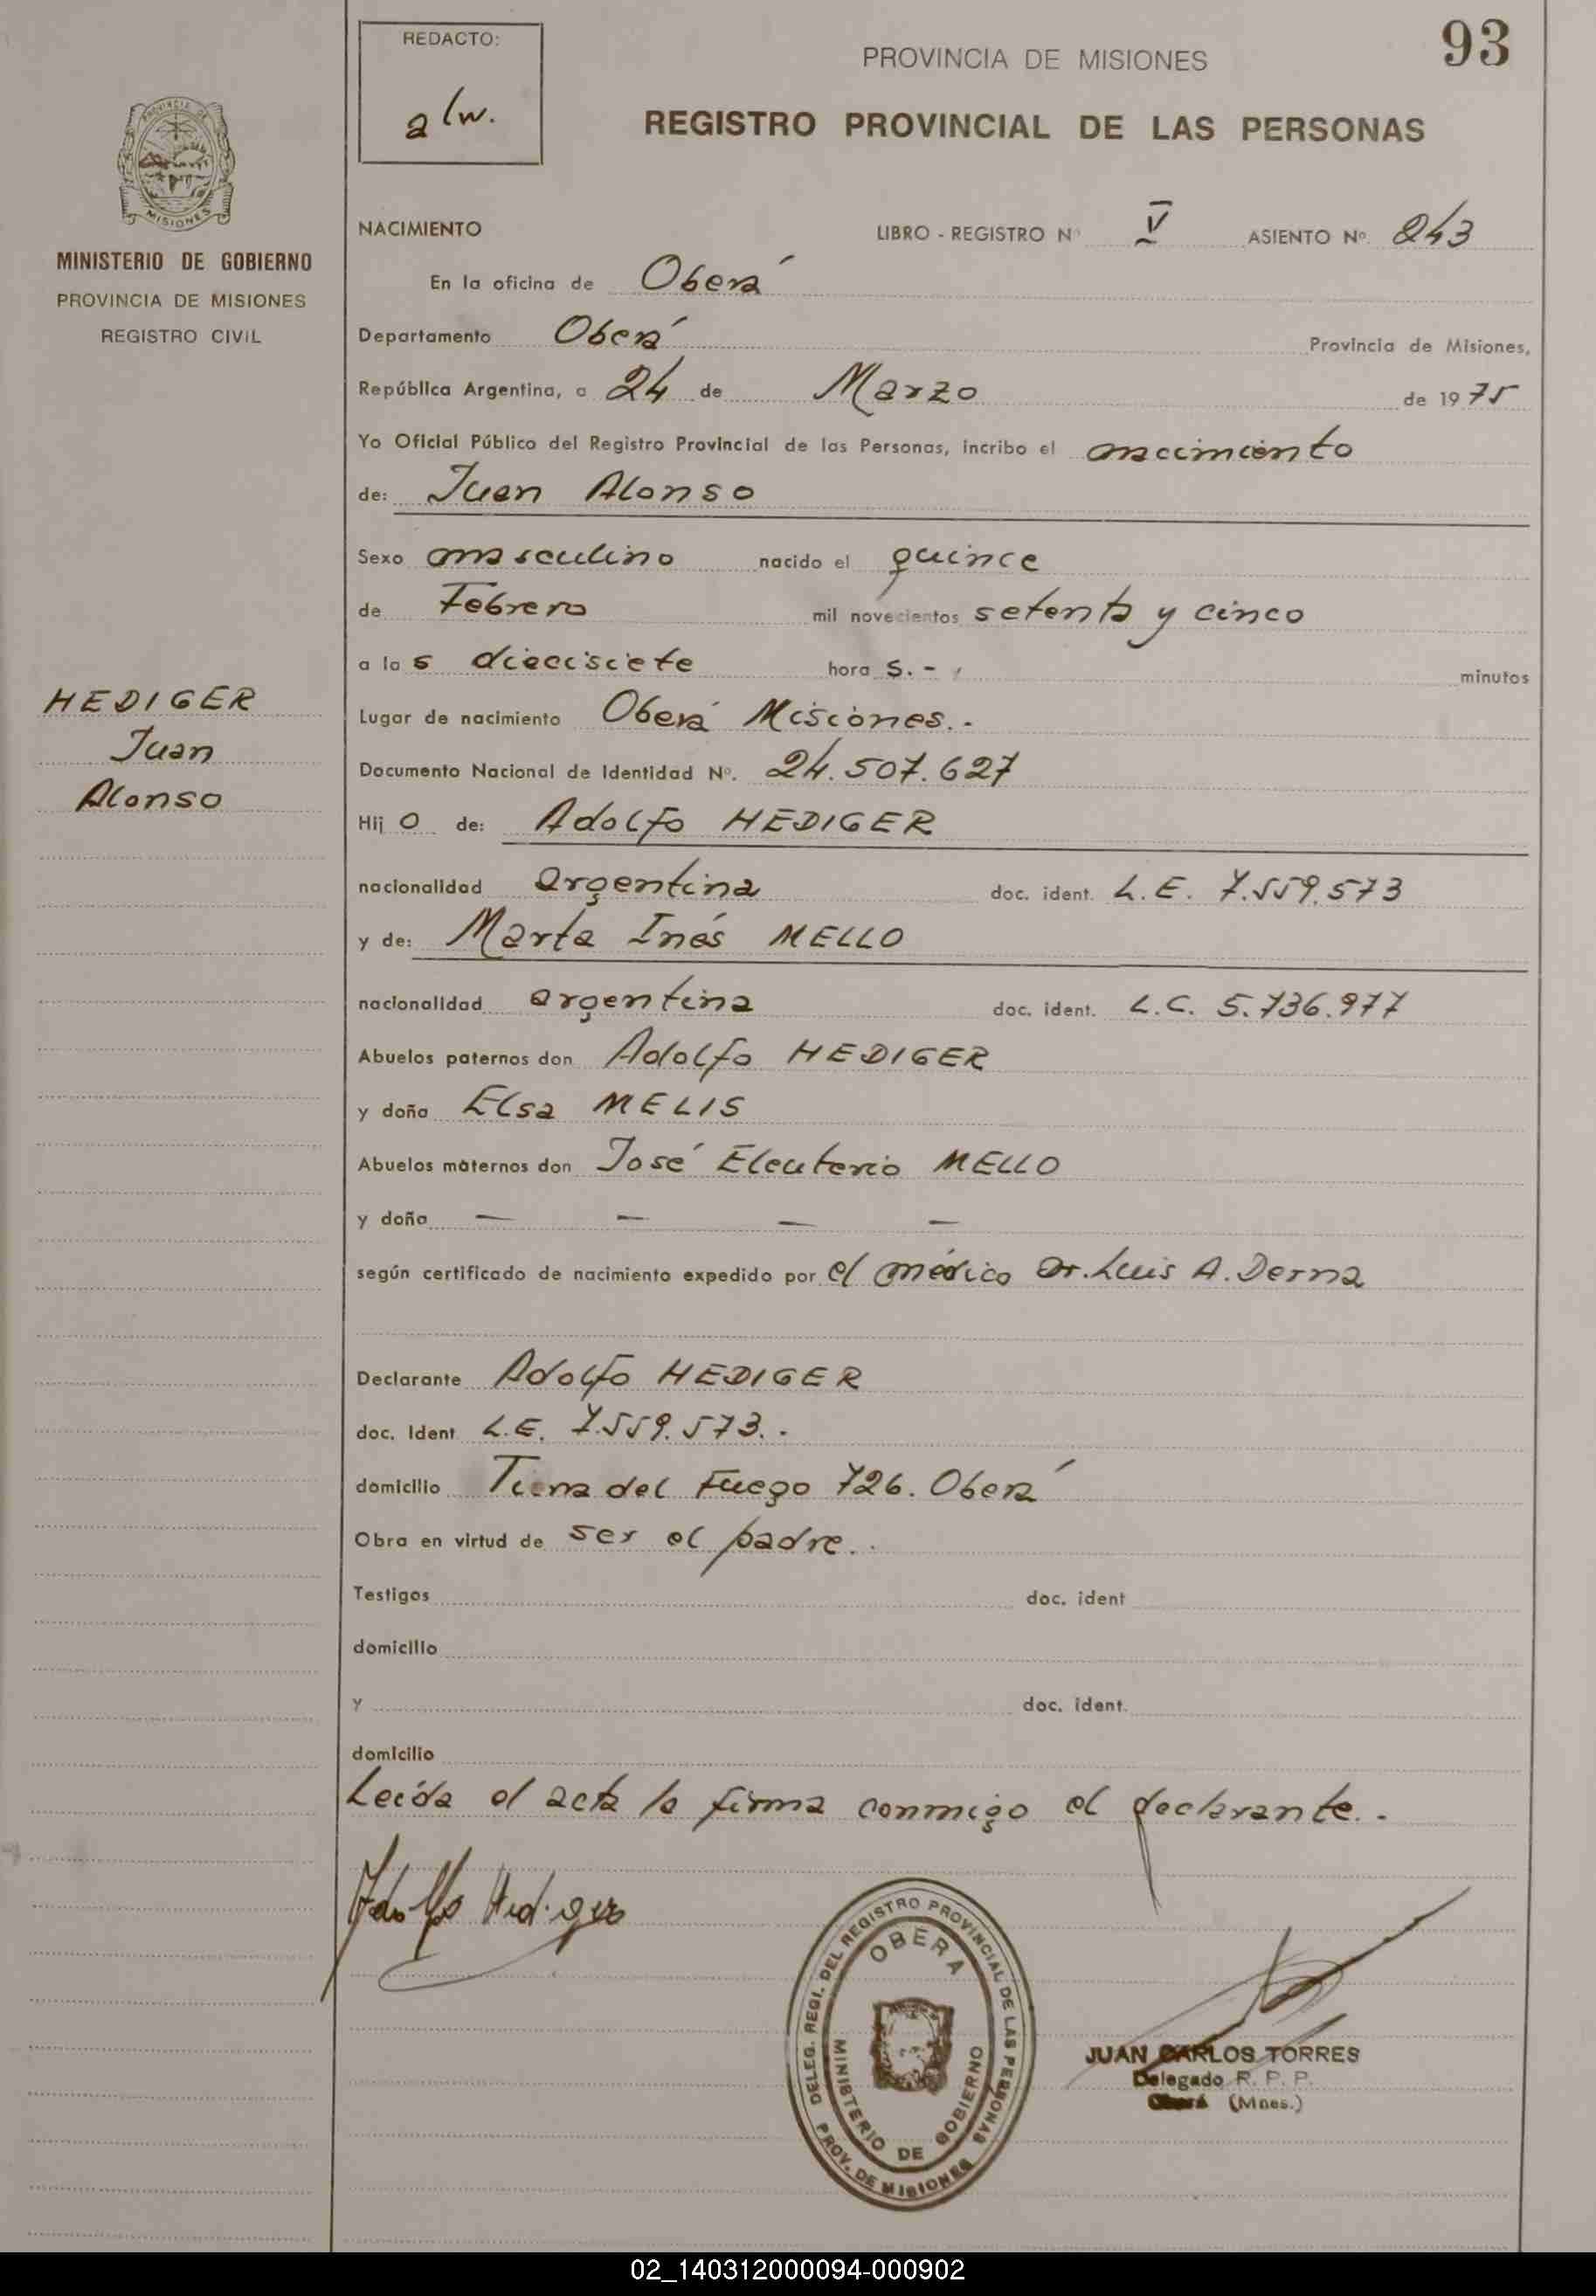 REDACTO:
alw.
93
PROVINCIA DE MISIONES
REGISTRO PROVINCIAL DE LAS PERSONAS
PROVINCIA DE
MISIONES
MINISTERIO DE GOBIERNO
PROVINCIA DE MISIONES
REGISTRO CIVIL
NACIMIENTO LIBRO - REGISTRO Nº V ASIENTO Nº 243
En la oficina de Oberá
Departamento Oberá Provincia de Misiones,
República Argentina, a 24 de Marzo de 1975
Yo Oficial Público del Registro Provincial de las Personas, incribo el nacimiento
de: Juan Alonso
Sexo masculino nacido el quince
de Febrero mil novecientos setenta y cinco
a las diecisiete horas. - minutos
HEDIGER
Juan
Alonso
Lugar de nacimiento Oberá Misiones.-
Documento Nacional de Identidad Nº. 24.507.627
Hijo de: Adolfo HEDIGER
nacionalidad argentina doc. ident. L.E. 7.559.573
y de: Marta Inés MELLO
nacionalidad argentina doc. ident. L.C. 5.736.977
Abuelos paternos don Adolfo HEDIGER
y doña Elsa MELIS
Abuelos maternos don José Eleuterio MELLO
y doña — — — —
según certificado de nacimiento expedido por el médico Dr. Luis A. Derna
Declarante Adolfo HEDIGER
doc. Ident L.E. 7.559.573.-
domicilio Tierra del Fuego 726. Oberá
Obra en virtud de ser el padre.-
Testigos doc. ident
domicilio
y doc. ident.
domicilio
Leída el acta la firma conmigo el declarante.-
Adolfo Hediger
DELEG. REGI. DEL REGISTRO PROVINCIAL DE LAS PERSONAS
OBERA
MINISTERIO DE GOBIERNO
PROV. DE MISIONES
JUAN CARLOS TORRES
Delegado R. P. P.
Oberá (Mnes.)
02_140312000094-000902